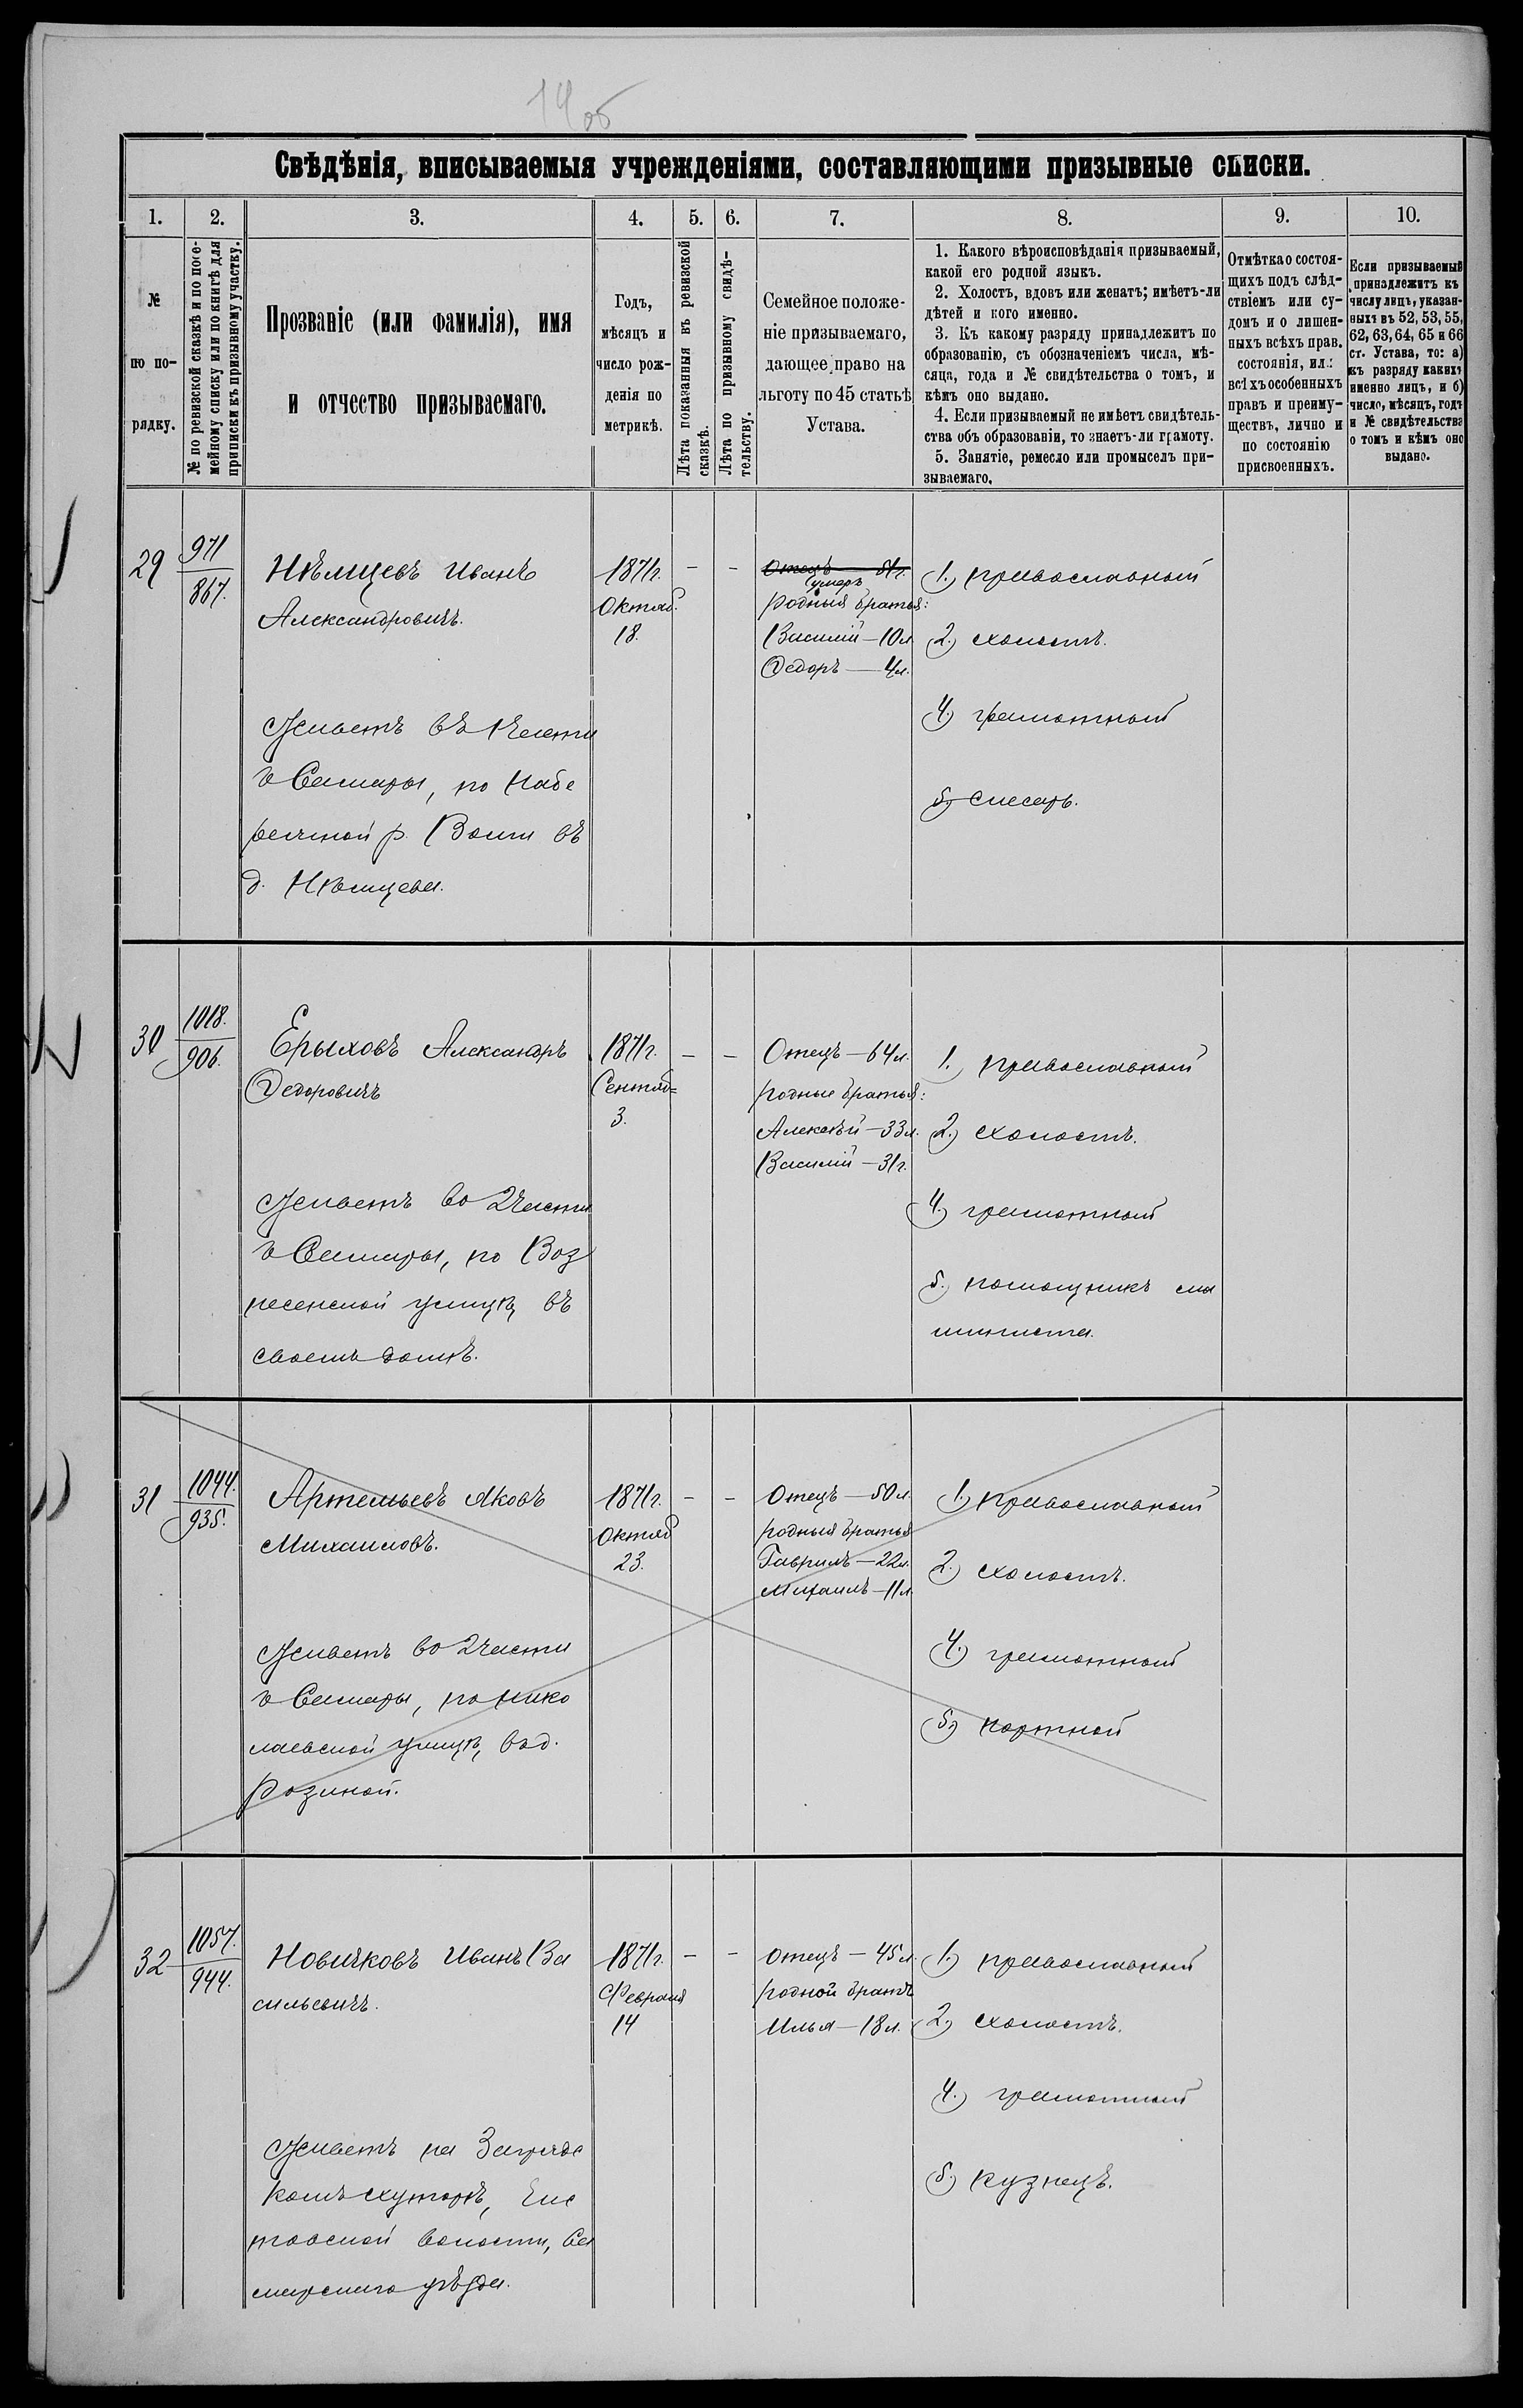 14об
Свѣдѣнія, вписываемыя учрежденіями, составляющими призывные списки.
1. 2. 3. 4. 5. 6. 7. 8. 9. 10.
№
по по-
рядку.
№ по ревизской сказкѣ и по посе-
мейному списку или по книгѣ для
приписки къ призывному участку.
Прозваніе (или фамилія), имя
и отчество призываемаго.
Годъ,
мѣсяцъ и
число рож-
денія по
метрикѣ.
Лѣта показанныя въ ревизской
сказкѣ.
Лѣта по призывному свидѣ-
тельству.
Семейное положе-
ніе призываемаго,
дающее право на
льготу по 45 статьѣ
Устава.
1. Какого вѣроисповѣданія призываемый,
какой его родной языкъ.
2. Холостъ, вдовъ или женатъ; имѣетъ-ли
дѣтей и кого именно.
3. Къ какому разряду принадлежитъ по
образованію, съ обозначеніемъ числа, мѣ-
сяца, года и № свидѣтельства о томъ, и
кѣмъ оно выдано.
4. Если призываемый не имѣетъ свидѣтель-
ства объ образованіи, то знаетъ-ли грамоту.
5. Занятіе, ремесло или промыселъ при-
зываемаго.
Отмѣтка о состоя-
щихъ подъ слѣд-
ствіемъ или су-
домъ и о лишен-
ныхъ всѣхъ прав.
состоянія, ил.:
всѣхъ особенныхъ
правъ и преиму-
ществъ, лично и
по состоянію
присвоенныхъ.
Если призываемый
принадлежитъ къ
числу лицъ, указан-
ныхъ въ 52, 53, 55,
62, 63, 64, 65 и 66
ст. Устава, то: а)
къ разряду какихъ
именно лицъ, и б)
число, мѣсяцъ, годъ
и № свидѣтельства
о томъ и кѣмъ оно
выдано.
29
971
867.
Нѣмцевъ Иванъ
Александровичъ.
Живетъ въ 1 части
г. Самары, по Набе
режной р. Волги въ
д. Нѣмцева.
1871г.
Октяб.
18.
- -
Отецъ — 51г.
умеръ
родныя братья:
Василій — 10л
Федоръ — 4л.
1.) православный
2.) холостъ.
4.) грамотный
5.) Слесарь.
30
1018.
906.
Ерыховъ Александръ
Федоровичъ
Живетъ во 2 части
г. Самары, по Воз
несенской улицѣ, въ
своемъ домѣ.
1871г.
Сентяб=
3.
- -
Отецъ — 64л.
родные братья:
Алексѣй — 33л.
Василій — 31г.
1.) православный
2.) холостъ.
4.) грамотный
5.) помощникъ ма
шиниста.
31
1044.
935.
Артемьевъ Яковъ
Михаиловъ.
Живетъ во 2 части
г. Самары, по Нико
лаевской улицѣ, въ д.
Розиной.
1871г.
Октяб
23.
- -
Отецъ — 50л.
родныя братья
Гаврилъ — 22л.
Михаилъ — 11л.
1.) православный
2.) холостъ.
4.) грамотный
5.) портной
32
1057.
944.
Новичковъ Иванъ Ва
сильевичъ.
Живетъ на
хуторѣ,
волости, Са
марскаго уѣзда.
1871г.
Февраля
14
- -
отецъ — 45л.
родной братъ
Илья — 18л.
1.) православный
2.) холостъ.
4.) грамотный
5.) кузнецъ.